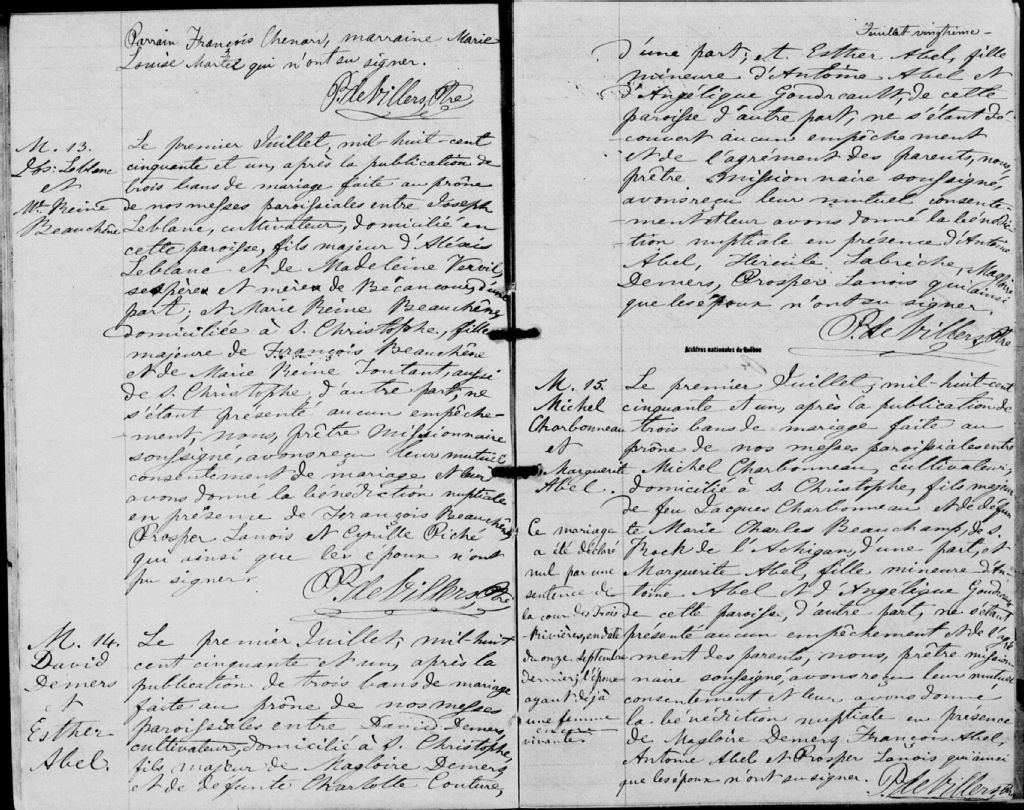 Parrain François Chenard, marraine Marie
Louise Martel qui n'ont su signer.
P. de Villers, Ptre
M. 13.
Jos: Leblanc
et
Mie Reine
Beauchêne
Le premier Juillet, mil-huit-cent
cinquante et un, après la publication de
trois bans de mariage faite au prône
de nos messes paroissiales entre Joseph
Leblanc, cultivateur, domicilié en
cette paroisse, fils majeur d'Alexis
Leblanc et de Madeleine
ses père et mère de Bécancour, d'une
part; et Marie Reine Beauchêne
domiciliée à S. Christophe, fille
majeure de François Beauchêne
et de Marie Reine Toutant, aussi
de S. Christophe, d'autre part, ne
s'étant présenté aucun empêche-
-ment, nous, prêtre missionnaire
soussigné, avons reçu leur mutuel
consentement de mariage et leur
avons donné la bénédiction nuptiale
en présence de François Beauchêne
Prosper Lanois et Cyrille Piché
qui ainsi que les époux n'ont
su signer.
P. de Villers, Ptre
M. 14.
David
Demers
et
Esther
Abel.
Le premier Juillet, mil-huit
cent cinquante et un, après la
publication de trois bans de mariage
faite au prône de nos messes
paroissiales entre David Demers,
cultivateur, domicilié à S. Christophe,
fils majeur de Magloire Demers
et de défunte Charlotte Couture,
Juillet vingtième
d'une part; et Esther Abel, fille
mineure d'Antoine Abel et
d'Angélique Goudreault, de cette
paroisse d'autre part, ne s'étant dé-
couvert aucun empêchement
et de l'agrément des parents, nous,
prêtre missionnaire soussigné,
avons reçu leur mutuel consente-
ment et leur avons donné la bénédic
tion nuptiale en présence d'Antoine
Abel, Hercule Labrèche, Magloire
Demers, Prosper Lanois qui ainsi
que les époux n'ont su signer.
P. de Villers, Ptre
Archives nationales du Québec
M. 15.
Michel
Charbonneau
et
Marguerite
Abel.
Ce mariage
a été déclaré
nul par une
sentence de
la cour des Trois
Rivières, en date
du onze Septembre
dernier, l'époux
ayant déjà
une femme
encore
vivante.
Le premier Juillet, mil-huit-cent
cinquante et un, après la publication de
trois bans de mariage faite au
prône de nos messes paroissiales entre
Michel Charbonneau, cultivateur,
domicilié à S. Christophe, fils majeur
de feu Jacques Charbonneau et de défun
te Marie Charles Beauchamp, de S.
Rock de l'Achigan, d'une part, et
Marguerite Abel, fille mineure d'An-
toine Abel et d'Angélique Goudreau
de cette paroisse, d'autre part, ne s'étant
présenté aucun empêchement et de l'agré
ment des parents, nous, prêtre mission
naire soussigné, avons reçu leur mutuel
consentement et leur avons donné
la bénédiction nuptiale en présence
de Magloire Demers, François Abel,
Antoine Abel et Prosper Lanois qui ainsi
que les époux n'ont su signer.
P. de Villers, Ptre